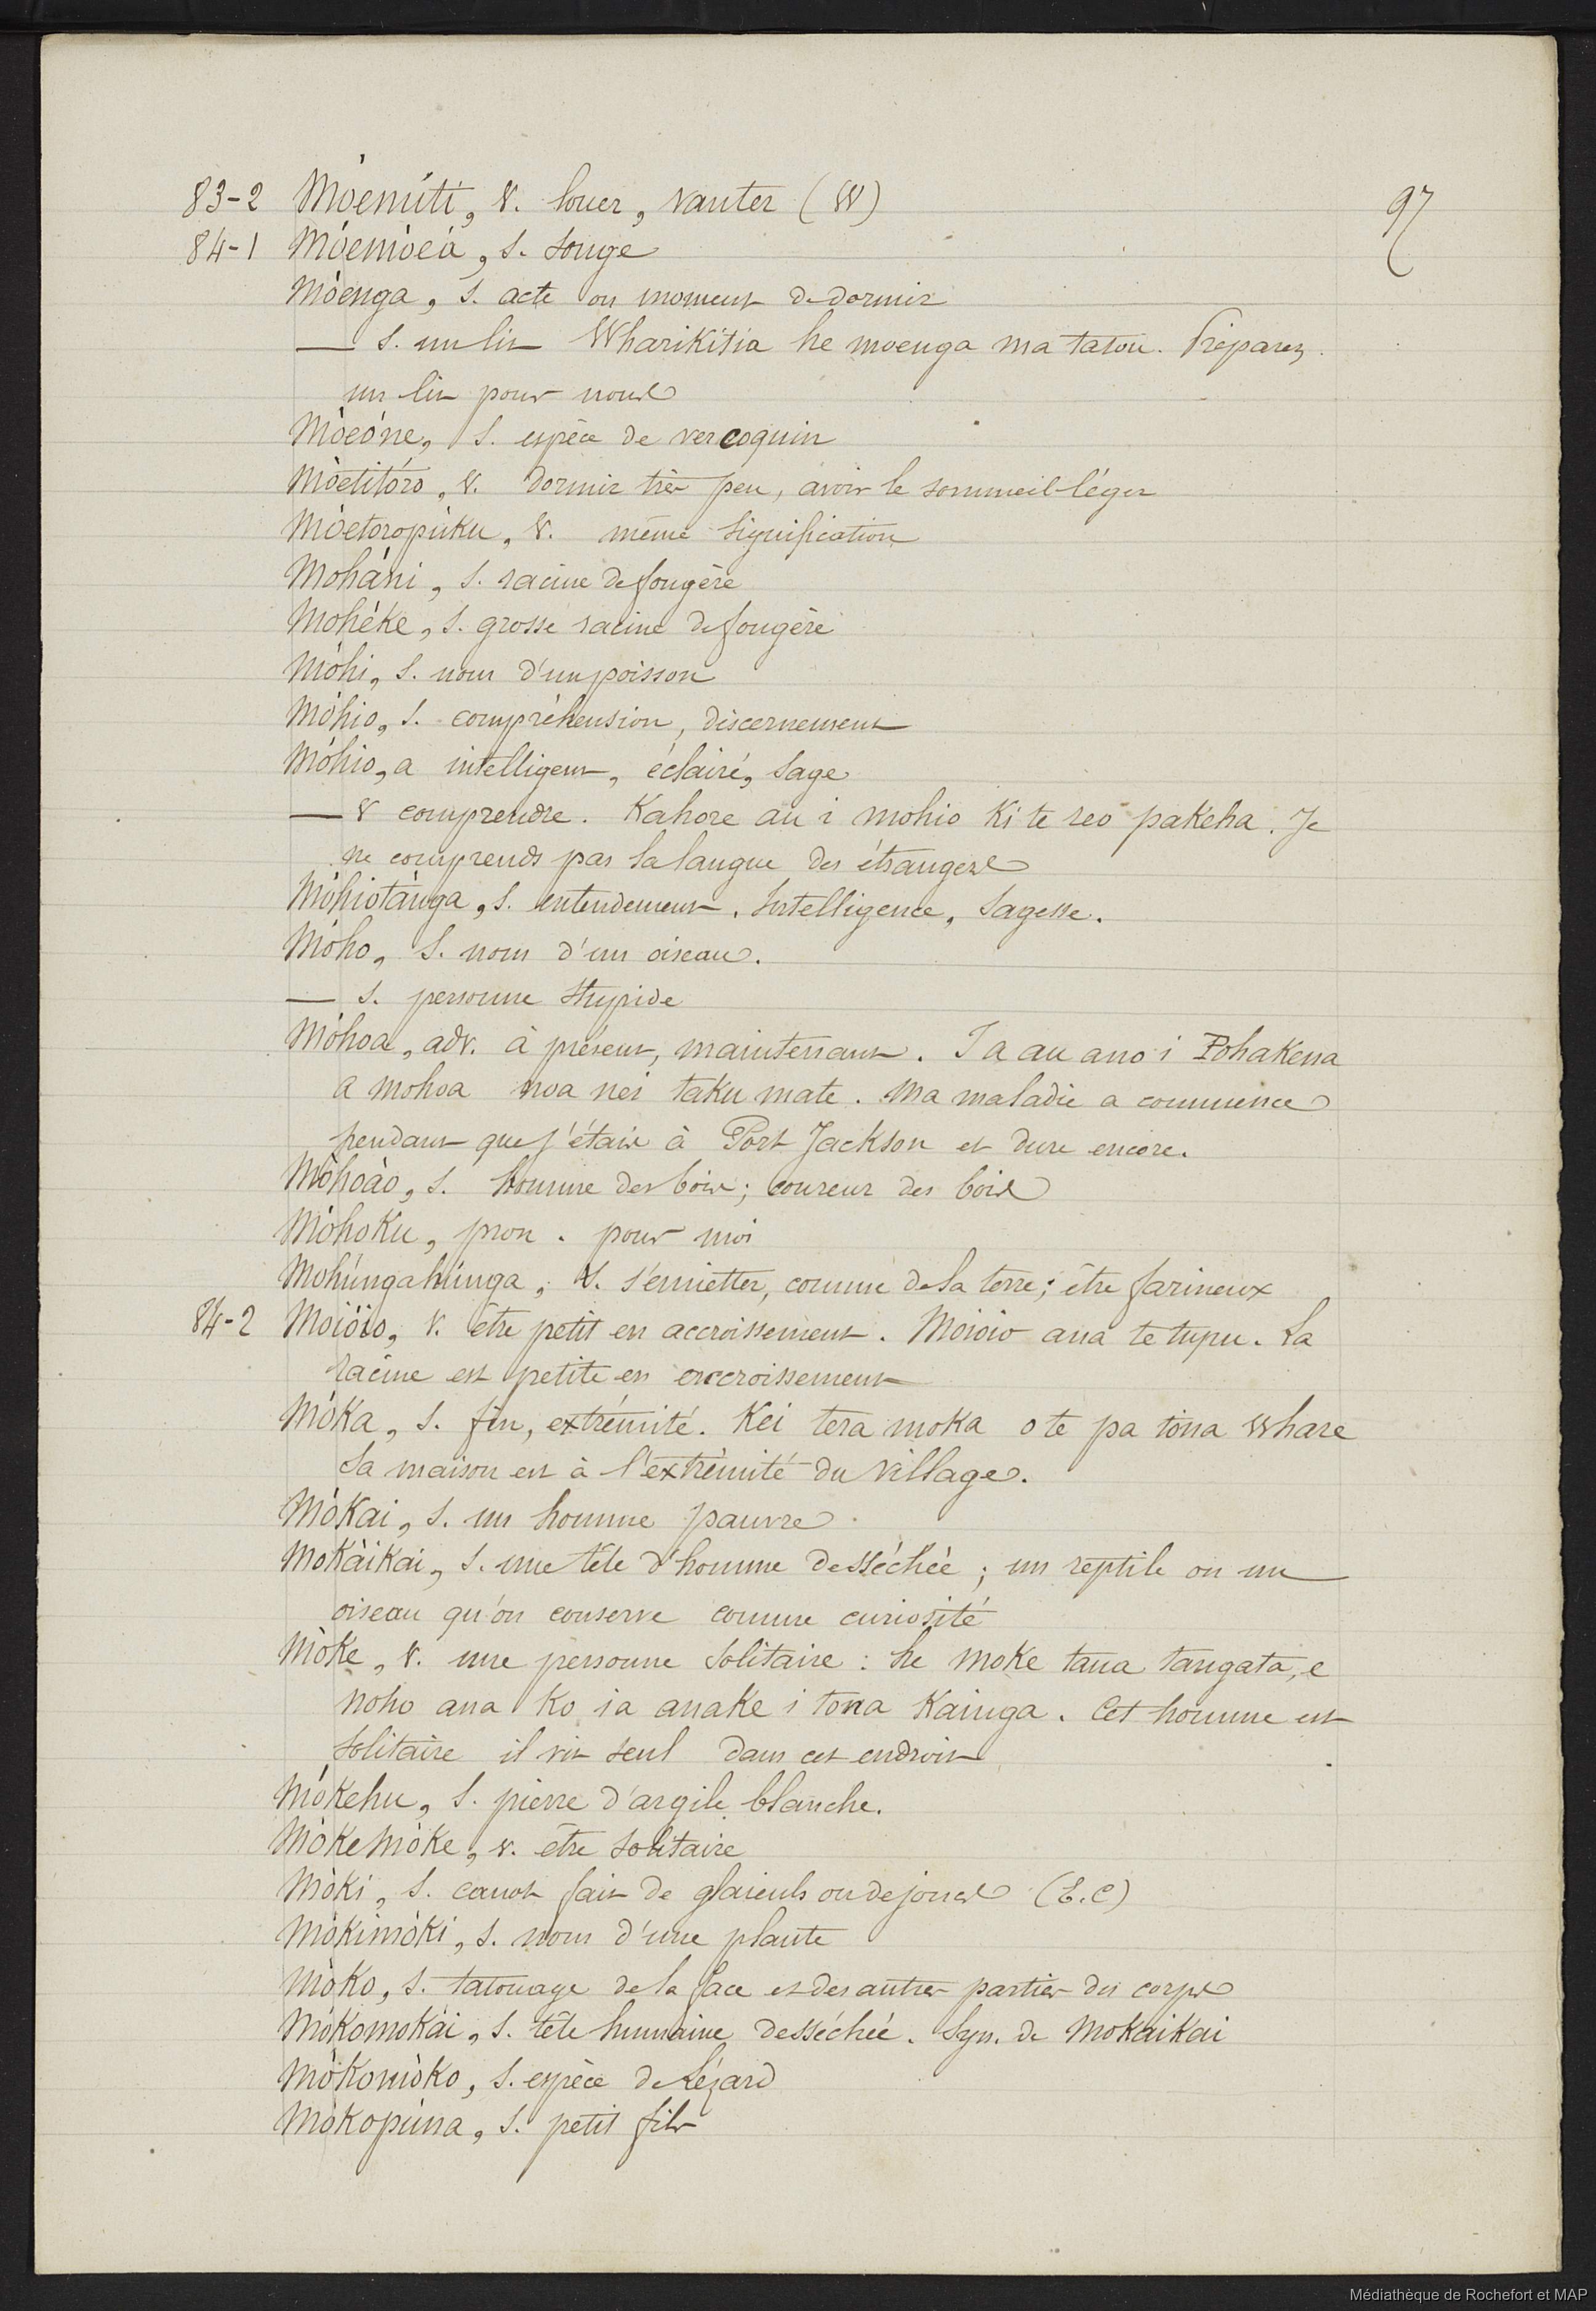 97
83-2 Móemíti, v. louer, vanter (W)
84-1 Móemòeá, s. songe
Mòenga, s. acte ou moment de dormir
— s. un lit Wharikitia he moenga ma tatou. Préparez
un lit pour nous
Mòeóne, s. espèce de vercoquin
Mòetitóro, v. dormir très peu, avoir le sommeil léger
Móetoropúku, v. même signification
Moháni, s. racine de fougère
Mohéke, s. grosse racine de fougère
Móhi, s. nom d'un poisson
Móhio, s. compréhension, discernement
Móhio, a intelligent, éclairé, sage
— v comprendre. Kahore au i mohio ki te reo pakeha. Je
ne comprends pas la langue des étrangers
Móhiotánga, s. entendement. Intelligence, sagesse.
Móho, s. nom d'un oiseau.
— s. personne stupide
Móhoa, adv. à présent, maintenant. I a au ano i Pohakena
a mohoa noa nei taku mate. Ma maladie a commencé
pendant que j'étais à Port Jackson et dure encore.
Móhoào, s. homme des bois; coureur des bois
Móhoku, pron. pour moi
Mohúngahúnga, v. s'émietter, comme de la terre; être farineux
84-2 Moióio, v. être petit en accroissement. Moioio ana te tupu. La
racine est petite en accroissement
Móka, s. fin, extrémité. Kei tera moka o te pa tona whare
Sa maison est à l'extrémité du village.
Mókai, s. un homme pauvre
Mokàikai, s. une tête d'homme desséchée; un reptile ou un
oiseau qu'on conserve comme curiosité
Mòke, v. une personne solitaire: he moke taua tangata, e
noho ana ko ia anake i tona kainga. Cet homme est
solitaire il vit seul dans cet endroit
Mókehu, s. pierre d'argile blanche.
Mòkemòke, v. être solitaire
Mòki, s. canot fait de glaieuls ou de joncs (E.C)
Mòkimòki, s. nom d'une plante
Mòko, s. tatouage de la face et des autres parties du corps
Mókomokái, s. tête humaine desséchée. Syn. de Mokaikai
Mòkomòko, s. espèce de Lézard
Mókopúna, s. petit fils
Médiathèque de Rochefort et MAP